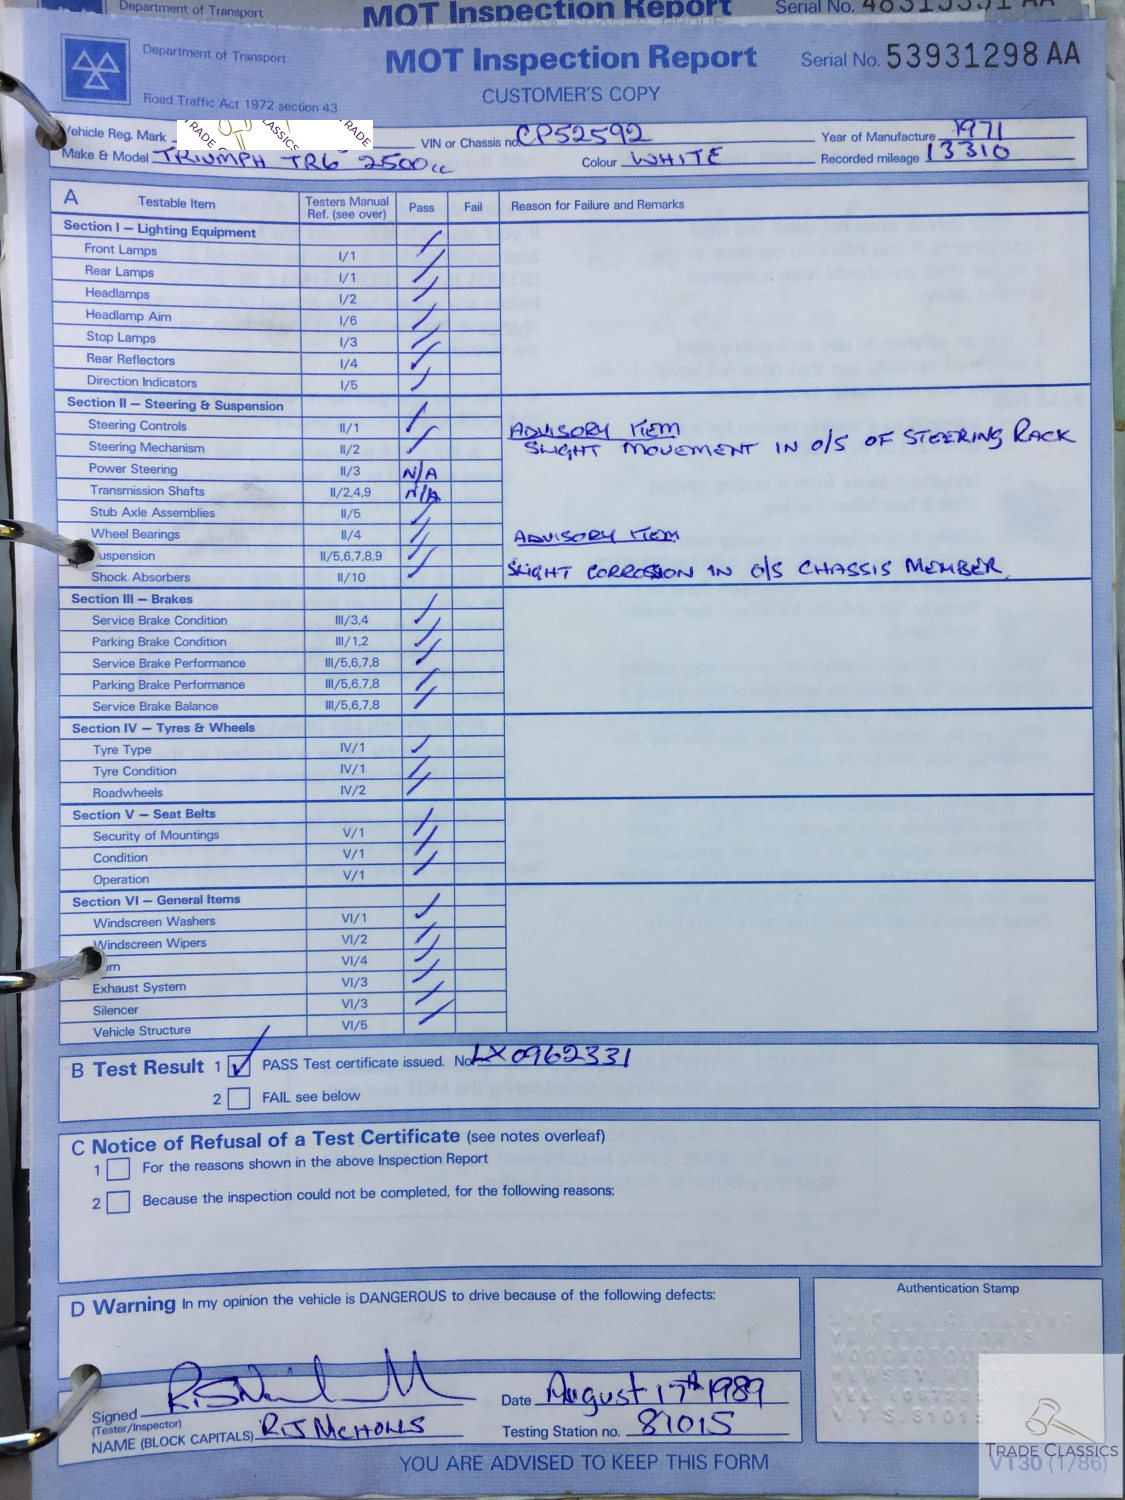 Department of Transport MOT Inspection Report Serial No. 48313331 AA
Department of Transport
MOT Inspection Report Serial No. 53931298 AA
Road Traffic Act 1972 section 43
CUSTOMER'S COPY
Vehicle Reg. Mark TRADE CLASSICS TRADE VIN or Chassis no. CP52592 Year of Manufacture 1971
Make & Model TRIUMPH TR6 2500cc Colour WHITE Recorded mileage 13310
A Testable Item Testers Manual Ref. (see over) Pass Fail Reason for Failure and Remarks
Section I – Lighting Equipment
Front Lamps I/1
Rear Lamps I/1
Headlamps I/2
Headlamp Aim I/6
Stop Lamps I/3
Rear Reflectors I/4
Direction Indicators I/5
Section II – Steering & Suspension
Steering Controls II/1 ADVISORY ITEM
Steering Mechanism II/2 SLIGHT MOVEMENT IN O/S OF STEERING RACK
Power Steering II/3 N/A
Transmission Shafts II/2,4,9 N/A
Stub Axle Assemblies II/5
Wheel Bearings II/4 ADVISORY ITEM
uspension II/5,6,7,8,9
Shock Absorbers II/10 SLIGHT CORROSION IN O/S CHASSIS MEMBER
Section III – Brakes
Service Brake Condition III/3,4
Parking Brake Condition III/1,2
Service Brake Performance III/5,6,7,8
Parking Brake Performance III/5,6,7,8
Service Brake Balance III/5,6,7,8
Section IV – Tyres & Wheels
Tyre Type IV/1
Tyre Condition IV/1
Roadwheels IV/2
Section V – Seat Belts
Security of Mountings V/1
Condition V/1
Operation V/1
Section VI – General Items
Windscreen Washers VI/1
Windscreen Wipers VI/2
orn VI/4
Exhaust System VI/3
Silencer VI/3
Vehicle Structure VI/5
B Test Result 1 PASS Test certificate issued. No. LX0962331
2 FAIL see below
C Notice of Refusal of a Test Certificate (see notes overleaf)
1 For the reasons shown in the above Inspection Report
2 Because the inspection could not be completed, for the following reasons:
D Warning In my opinion the vehicle is DANGEROUS to drive because of the following defects:
Authentication Stamp
Signed
(Tester/Inspector)
Date August 17th 1989
NAME (BLOCK CAPITALS) RJ NICHOLLS
Testing Station no. 81015
V.T.S. 81015
YOU ARE ADVISED TO KEEP THIS FORM
TRADE CLASSICS
VT30 (1/86)